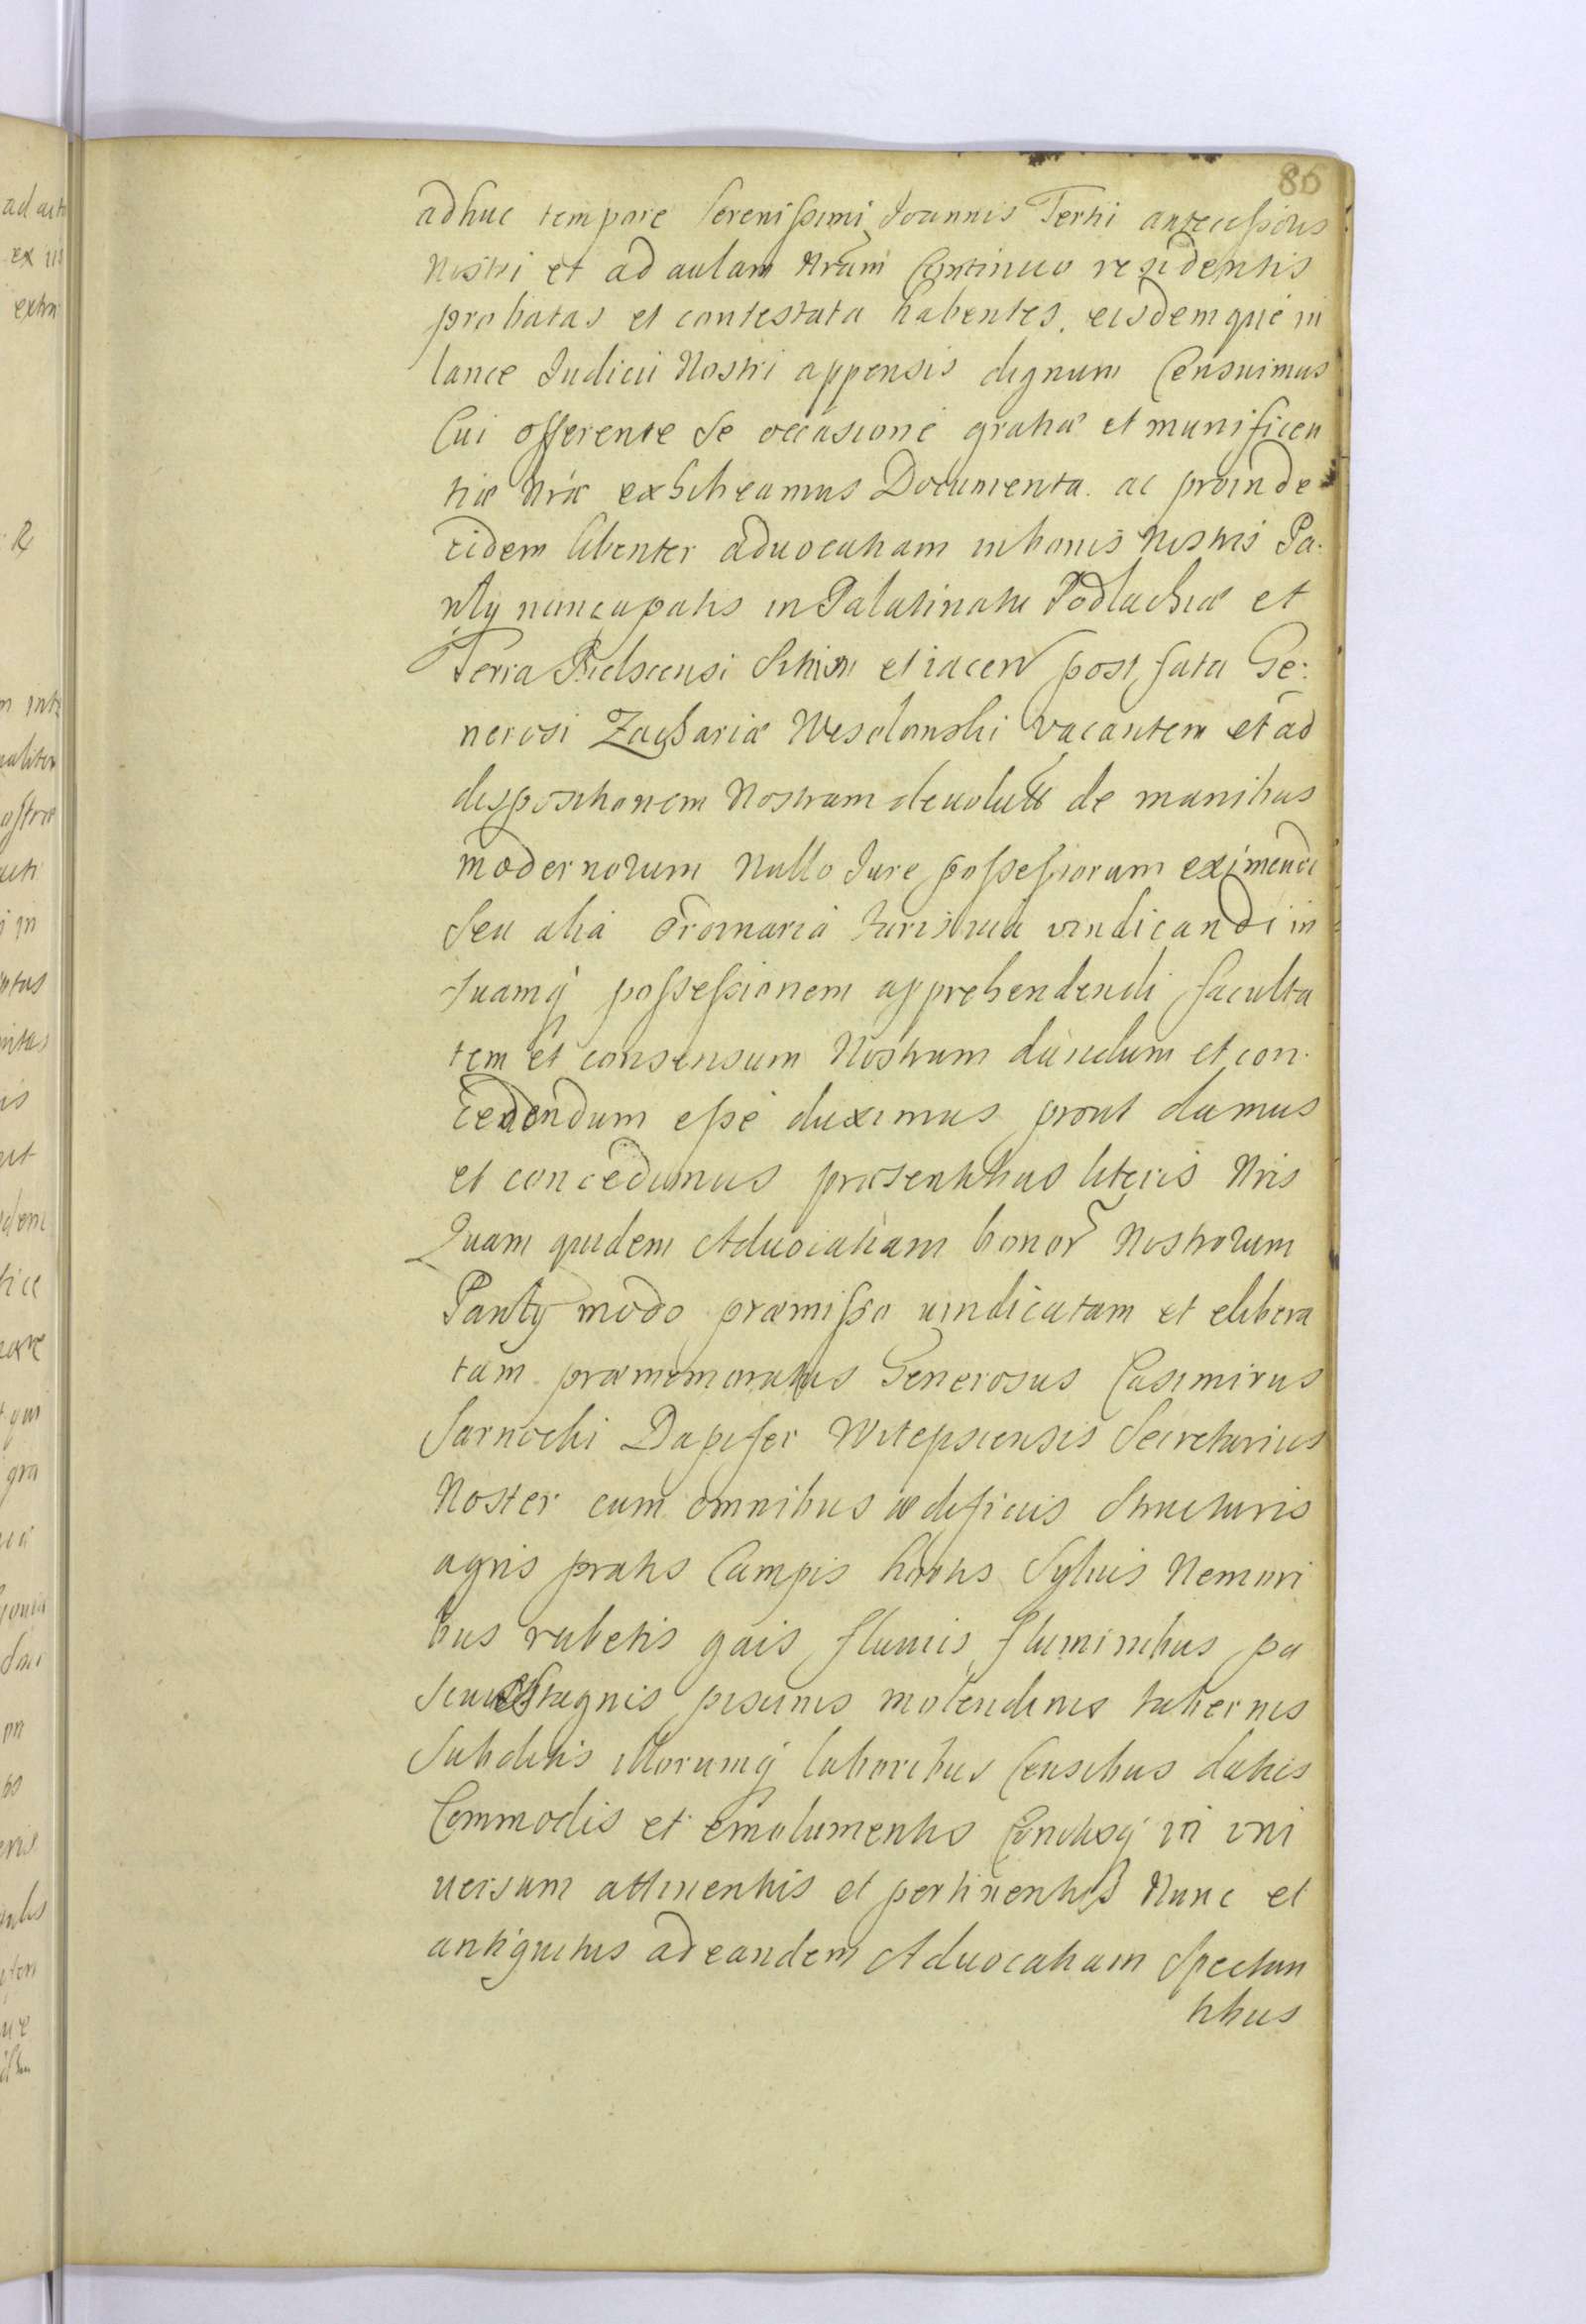 86
adhuc tempore Serenissimi Joannis Tertii antecessoris
Nostri et ad aulam Nram Continuo residentis
probatas et contestata habentes, eisdemque in
lance Judicii Nostri appensis dignum Censuimus
Cui offerente se occasione gratiæ et munificen
tiæ Nræ exhibeamus Documenta. ac proinde
eidem libenter aduocatiam in bonis Nostris Pa.
ńty nuncupatis in Palatinatu Podlachiæ et
Terra Bielscensi Sitam et iacen post fata Ge:
nerosi Zachariæ Wesolowski vacantem et ad
dispositionem Nostram deuolut de manibus
modernorum Nullo Jure possessorum eximendi
Seu alia Ordinaria Juris via vindicandi in
suamq possessionem apprehendendi faculta
tem et consensum Nostrum dandum et con.
cedendum esse duximus prout damus
et concedimus præsentibus literis Nris
Quam quidem Aduocatiam bonor Nostrorum
Pańty modo præmisso uindicatam et elibera
tam præmemoratus Generosus Casimirus
Sarnocki Dapifer Witepscensis Secretarius
Noster cum omnibus ædificiis Structuris
agris pratis Campis hortis Syluis Nemori
bus rubetis gais fluuiis fluminibus pa
scuis Stagnis piscinis molendinis tabernis
Subditis illorumq laboribus Censibus datiis
Commodis et emolumentis Cunctisq in vni
uersum attinentiis et pertinentiis Nunc et
antiquitus ad eandem Aduocatiam Spectan
tibus